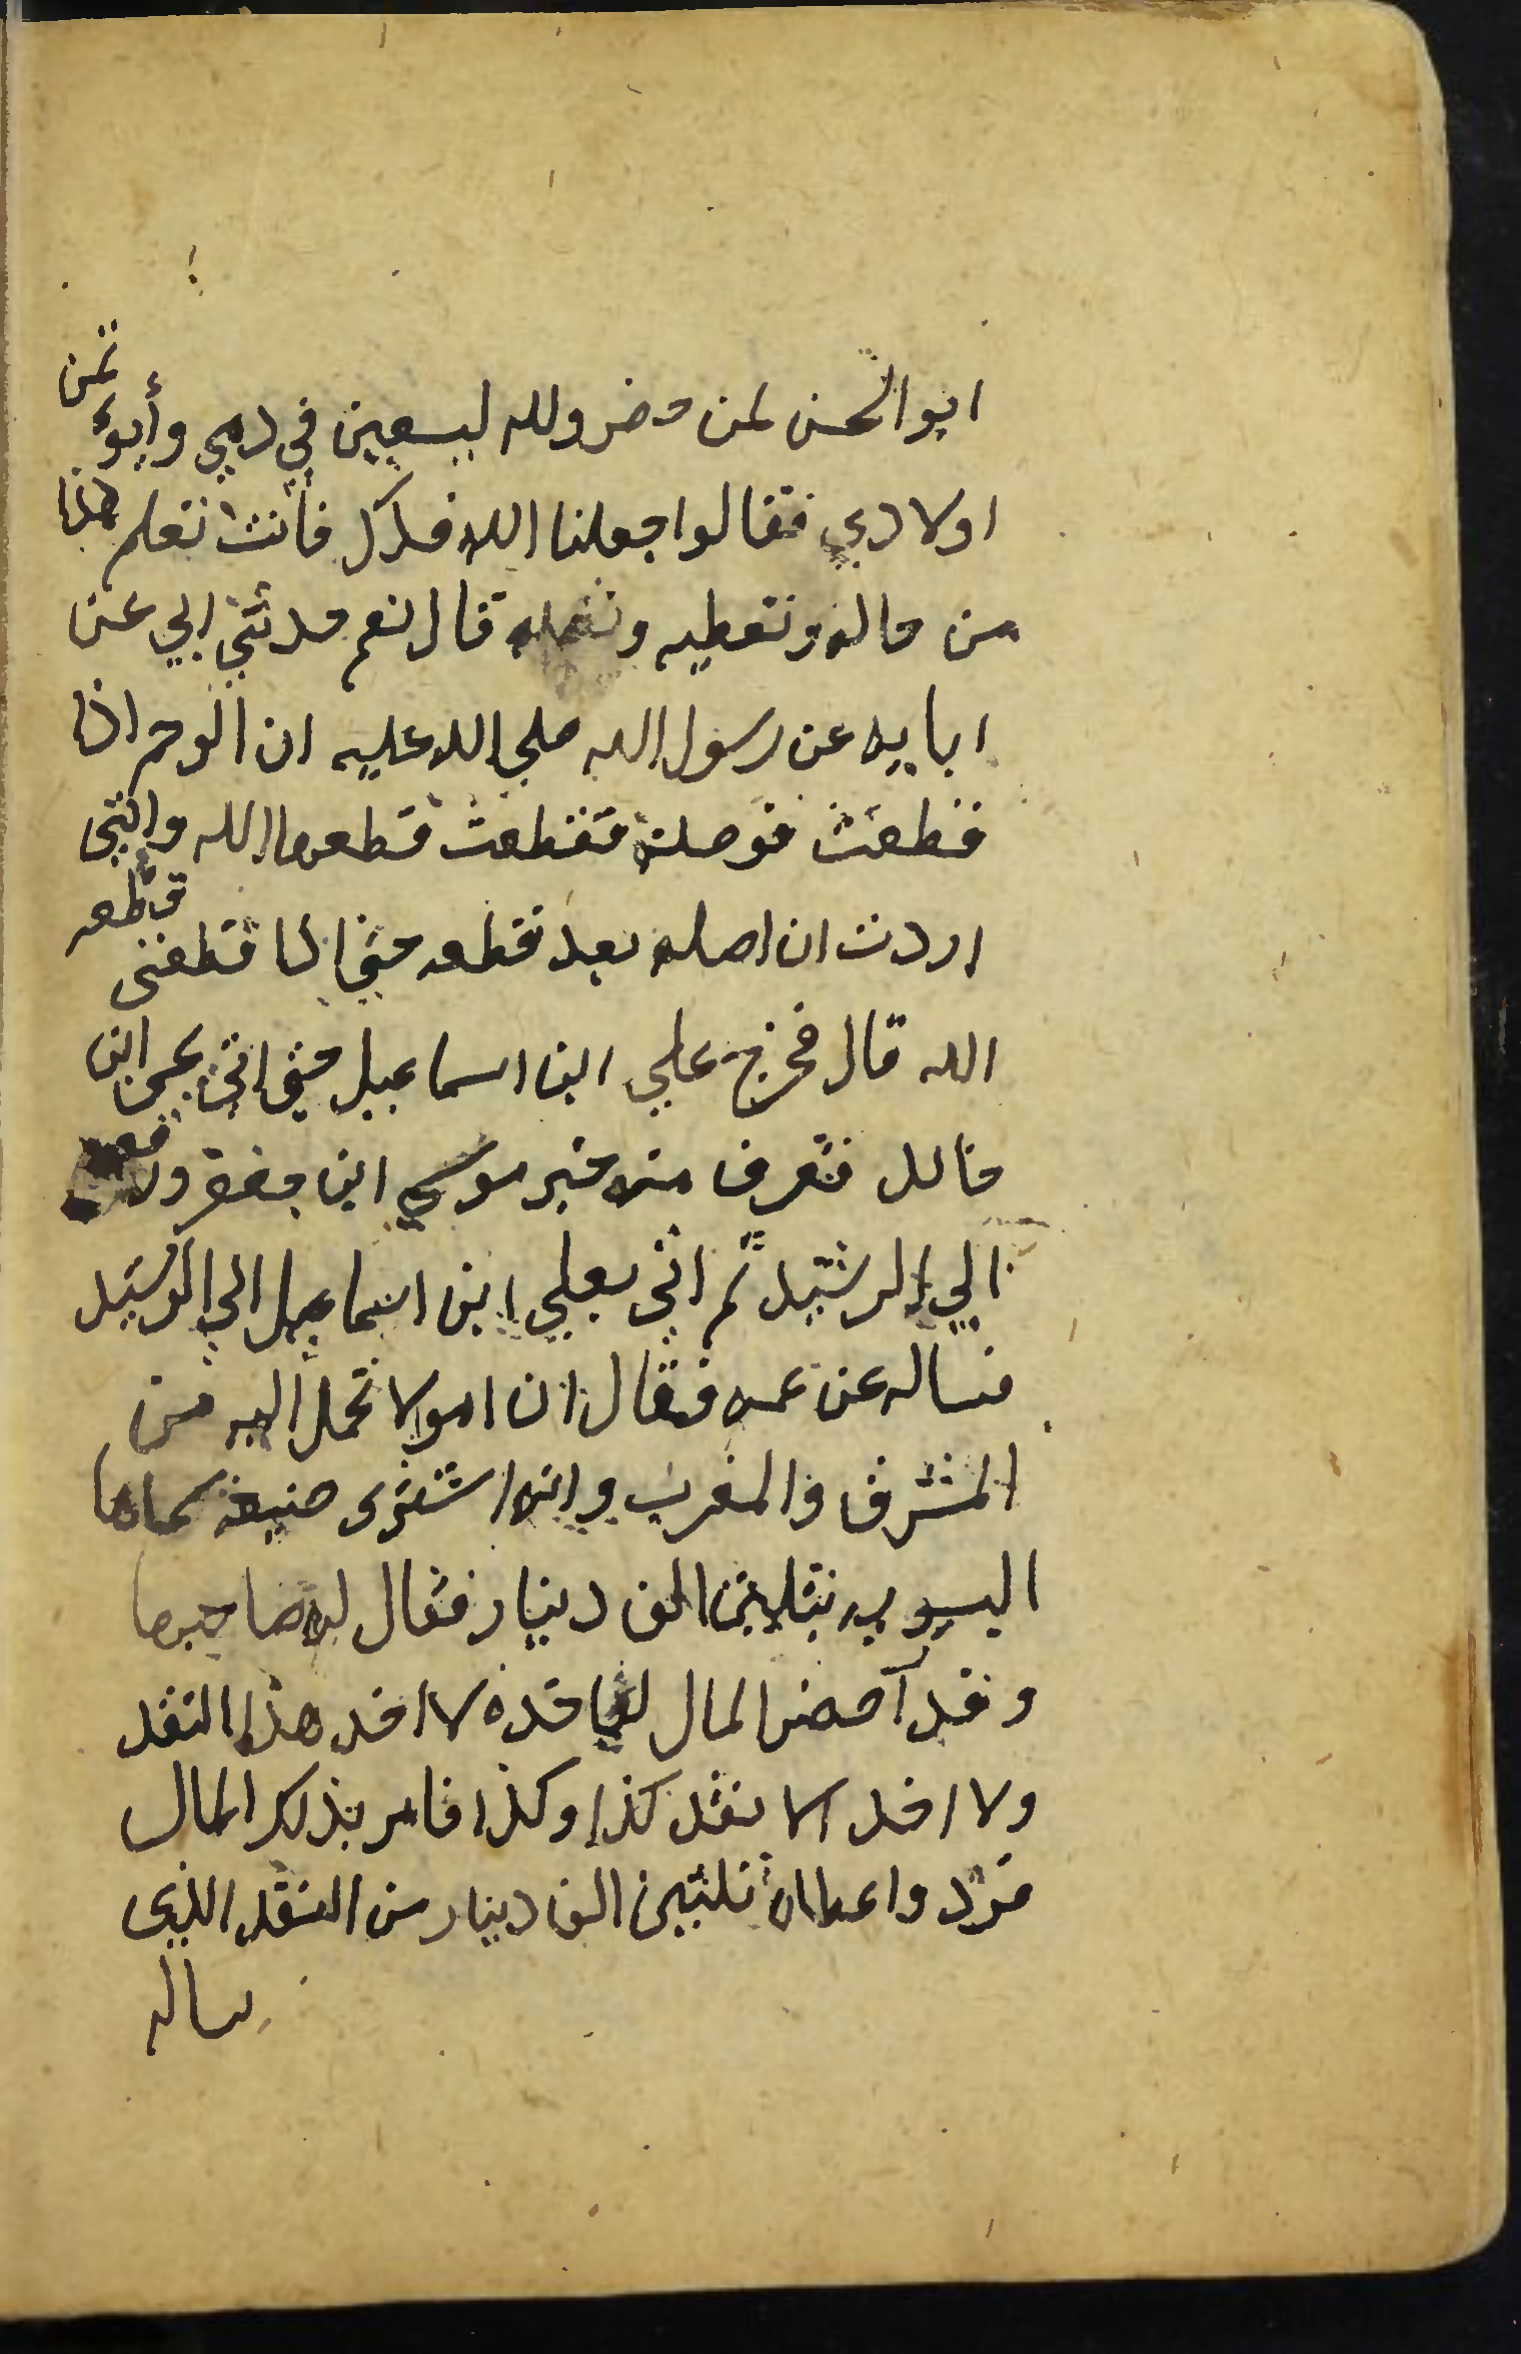 ابو الحسن لمن حضر ولله ليسعين في دمي وأيوء تمن
اولادي فقالوا جعلنا الله فداك فأنت تعلم هذا
من حاله وتعطيه وتصله قال نعم حدثني ابي عن
ابايه عن رسول الله صلي الله عليه ان الرحم اذا
قطعت فوصلت فقطعت قطعها الله وانني
اردت ان اصله بعد قطعه حتي اذا قطعني قطعه
الله قال فخرج علي ابن اسماعيل حتى اتى يحيى ابن
خالد فتعرف منه خبر موسي ابن جعفر ورفعه
الي الرشيد ثم اتى بعلي ابن اسماعيل الي الرشيد
فساله عن عمه فقال ان اموالا تحمل اليه من
المشرق والمغرب وانه اشترى ضيعة سماها
اليسيريه بثلاثين الف دينار فقال له صاحبها
وقد احضر المال لياخذه لا اخد هذا النقد
ولا اخد الا نقد كذا وكذا فامر بذلك المال
فرد واعطاه ثلثين الف دينار من النقد الذي
ساله